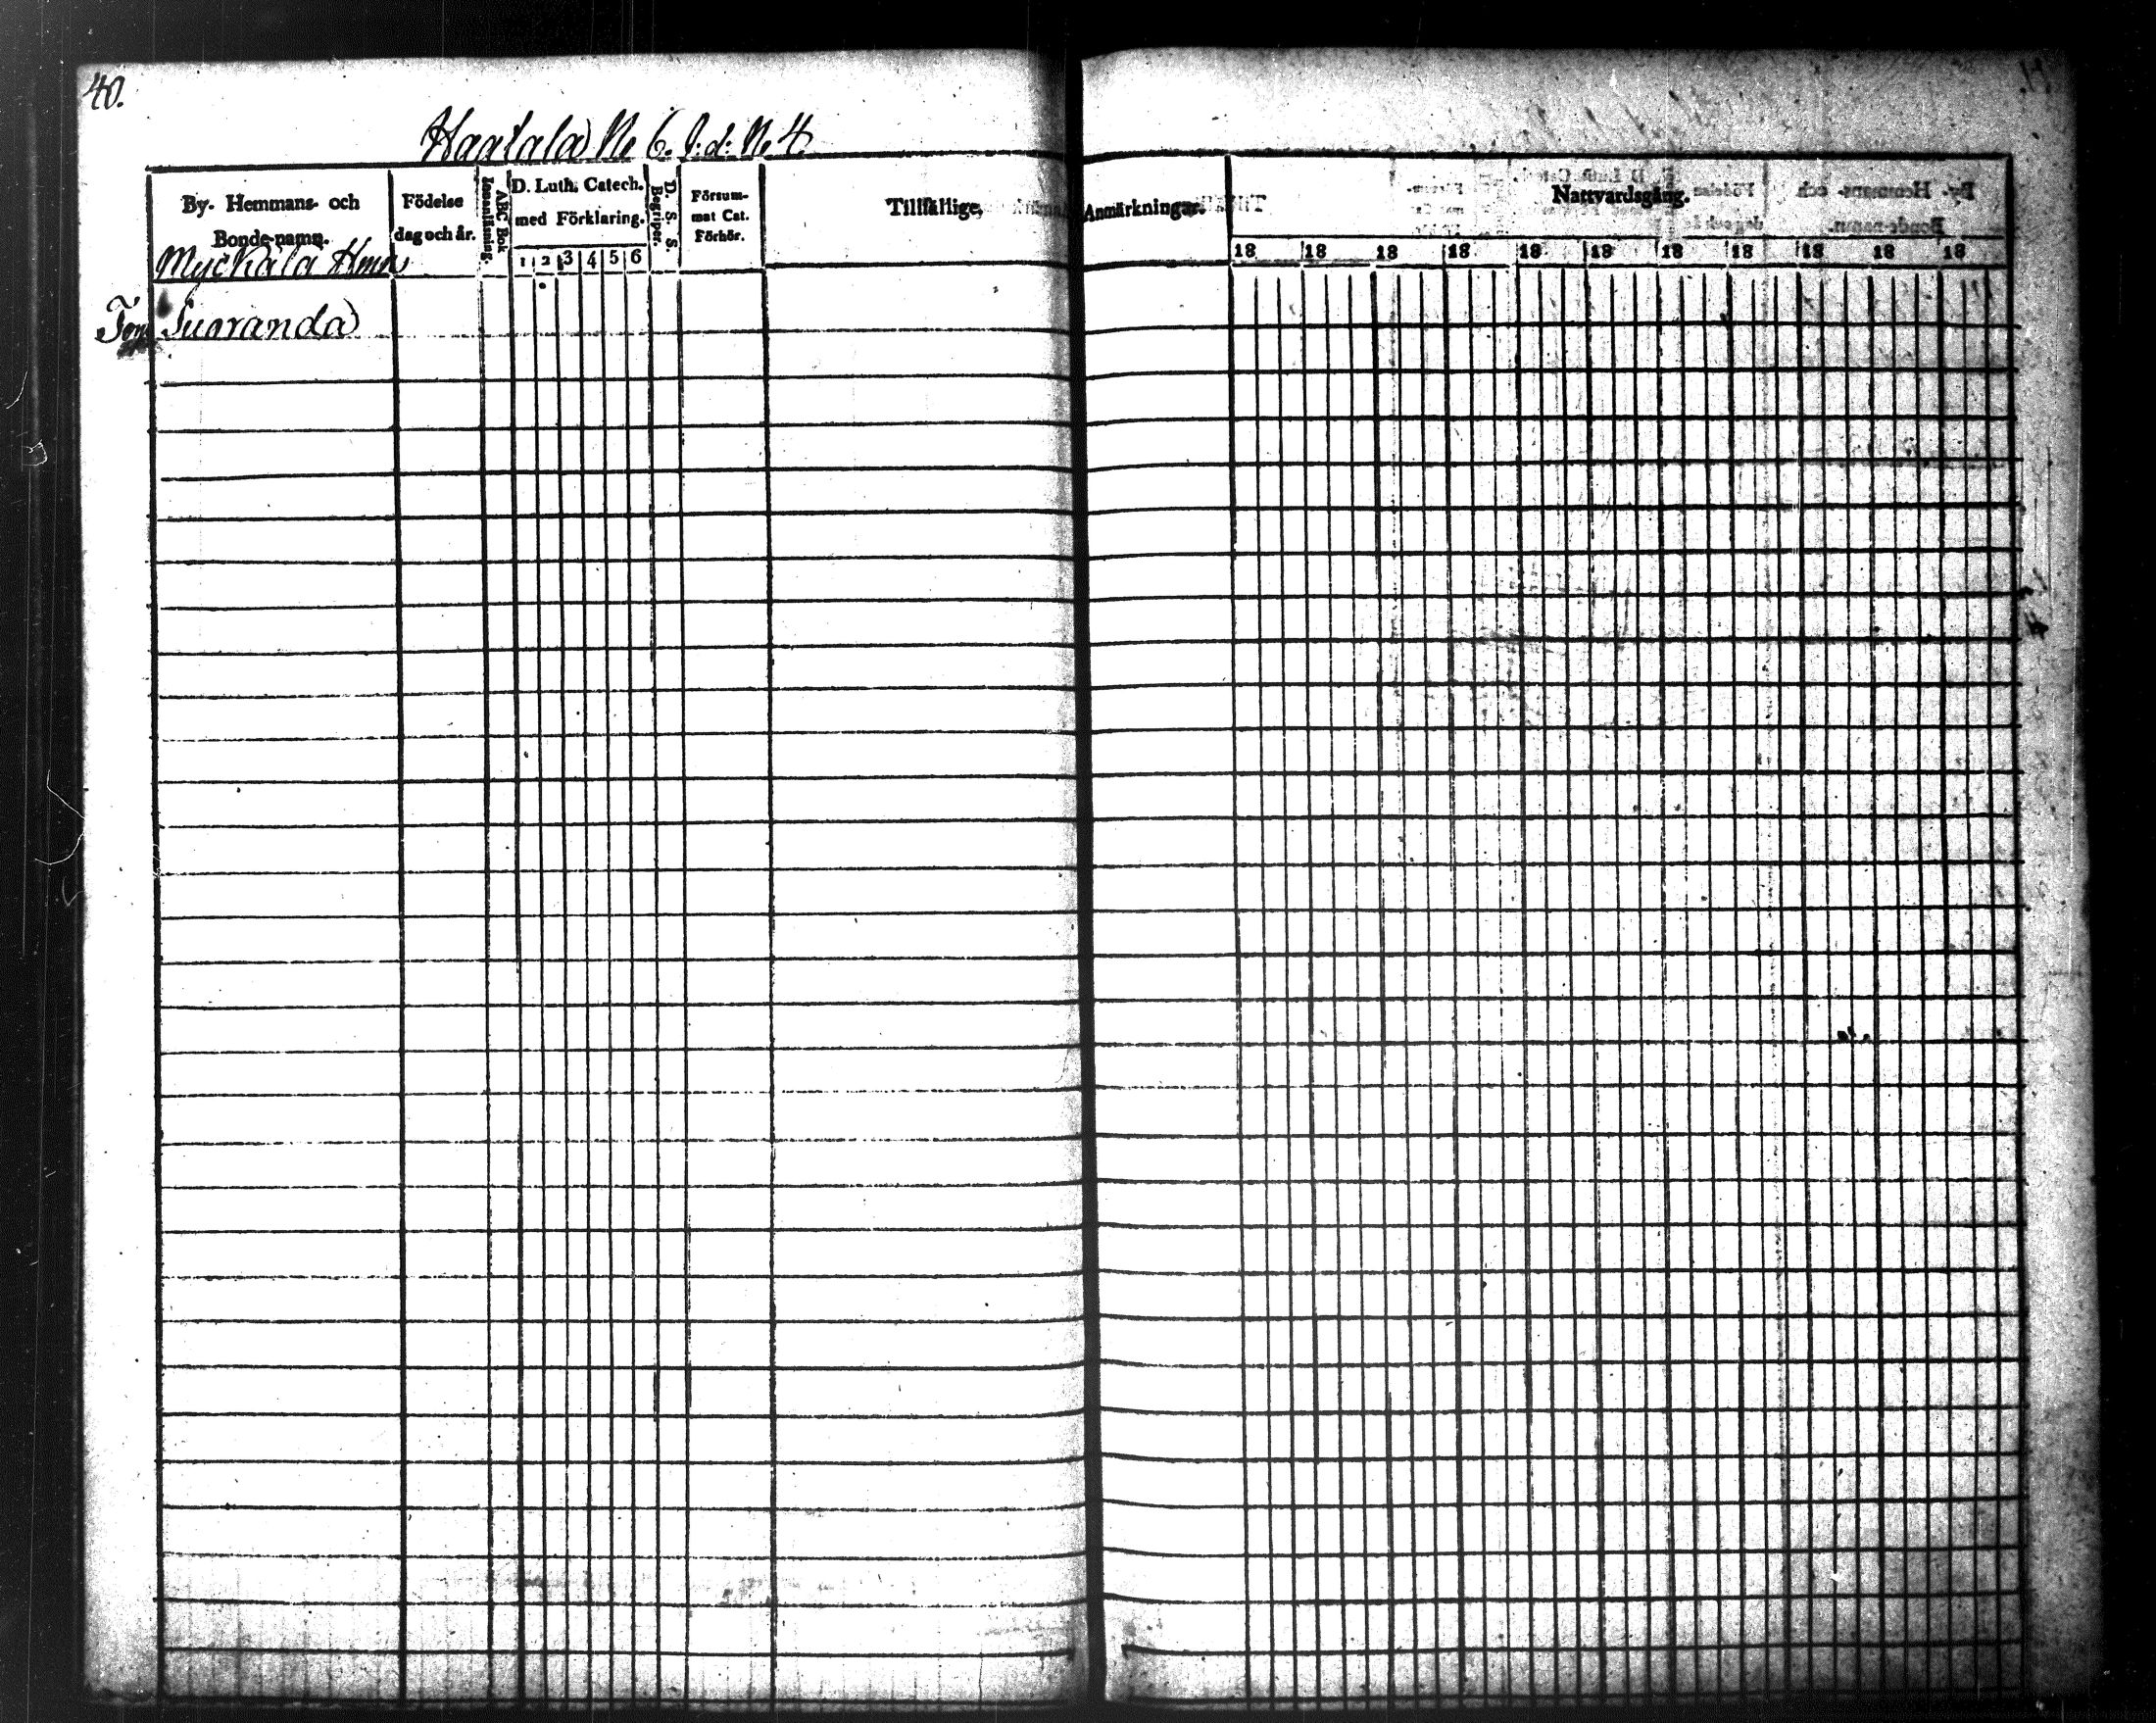 40.
Haatala No 6. J:d: No 4.
By- Hemmans- och Bonde-namn.
Födelse dag och år.
ABC Bok Innanläsning.
D. Luth. Catech. med Förklaring.
1 2 3 4 5 6
D. S. S. Begriper.
Försum-
mat Cat.
Förhör.
Tillfällige Anmärkningar.
Nattvardsgång.
18 18 18 18 18 18 18 18 18 18 18
Myckälä Hmn
Torp Suoranda